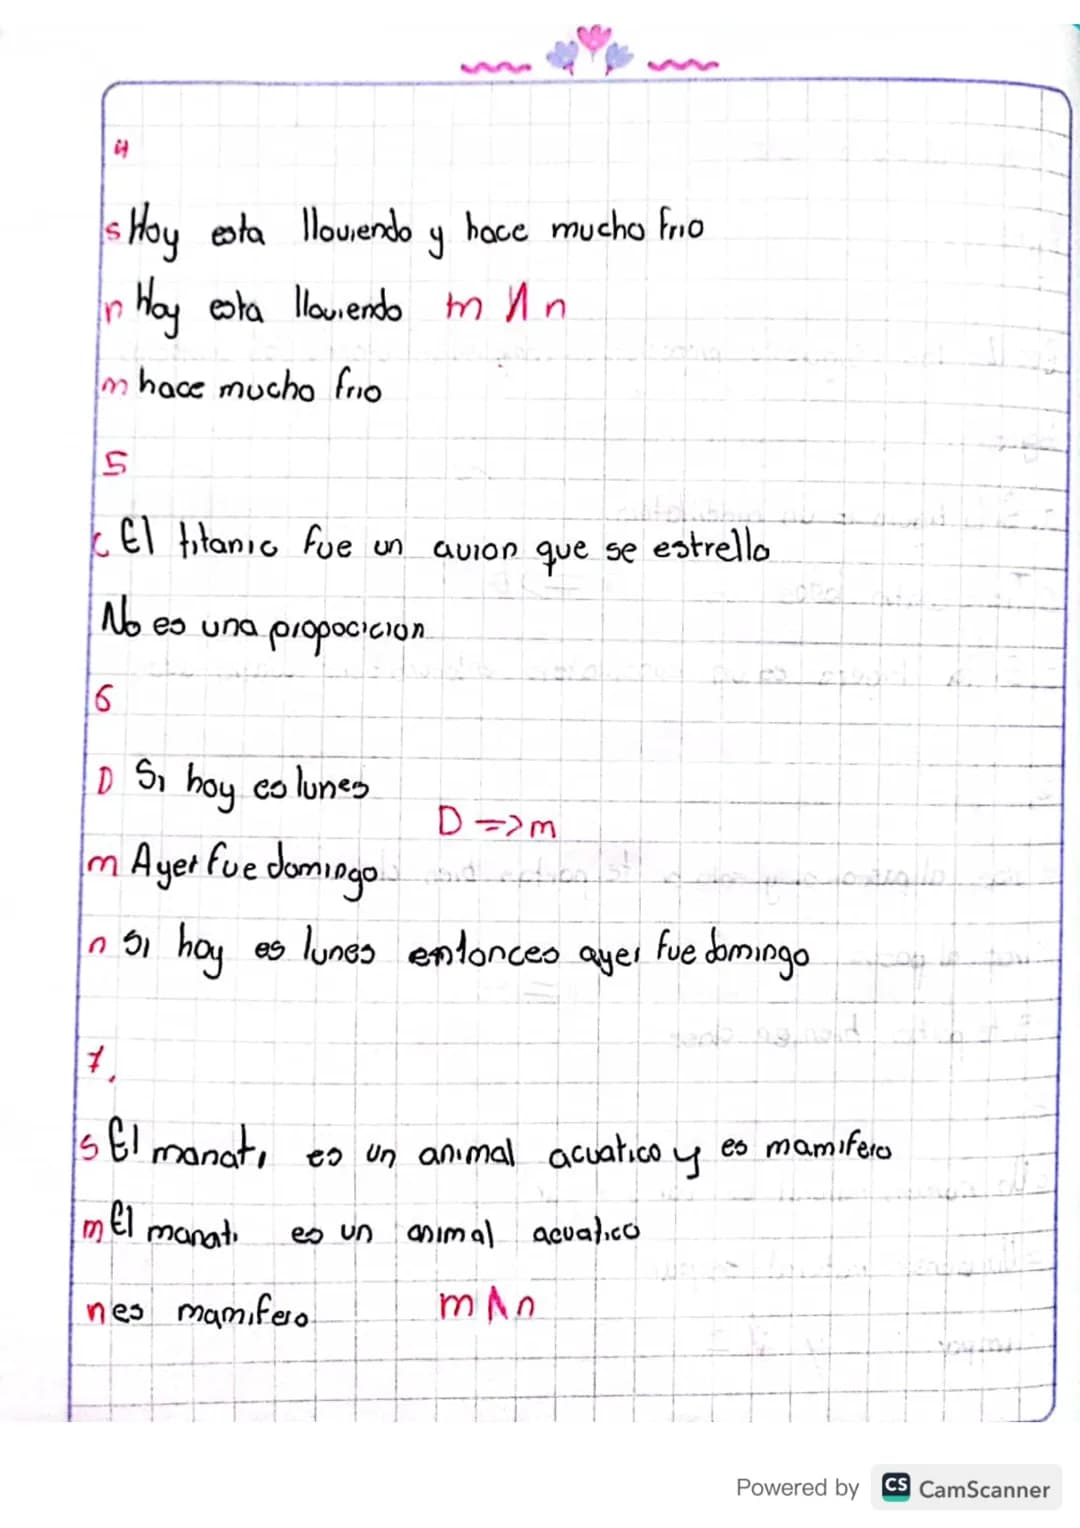 4
s Hoy esta lloviendo y hace mucho frio
n Hoy esta lloviendo m Λ n
m hace mucho frio
5
c El titanic fue un avion que se estrello
No es una propocicion
6
D Si hoy es lunes
D => m
m Ayer fue domingo
n Si hoy es lunes entonces ayer fue domingo
7.
s El manati es un animal acuatico y es mamifero
m El manati es un animal acuatico
n es mamifero m Λ n
Powered by CS CamScanner